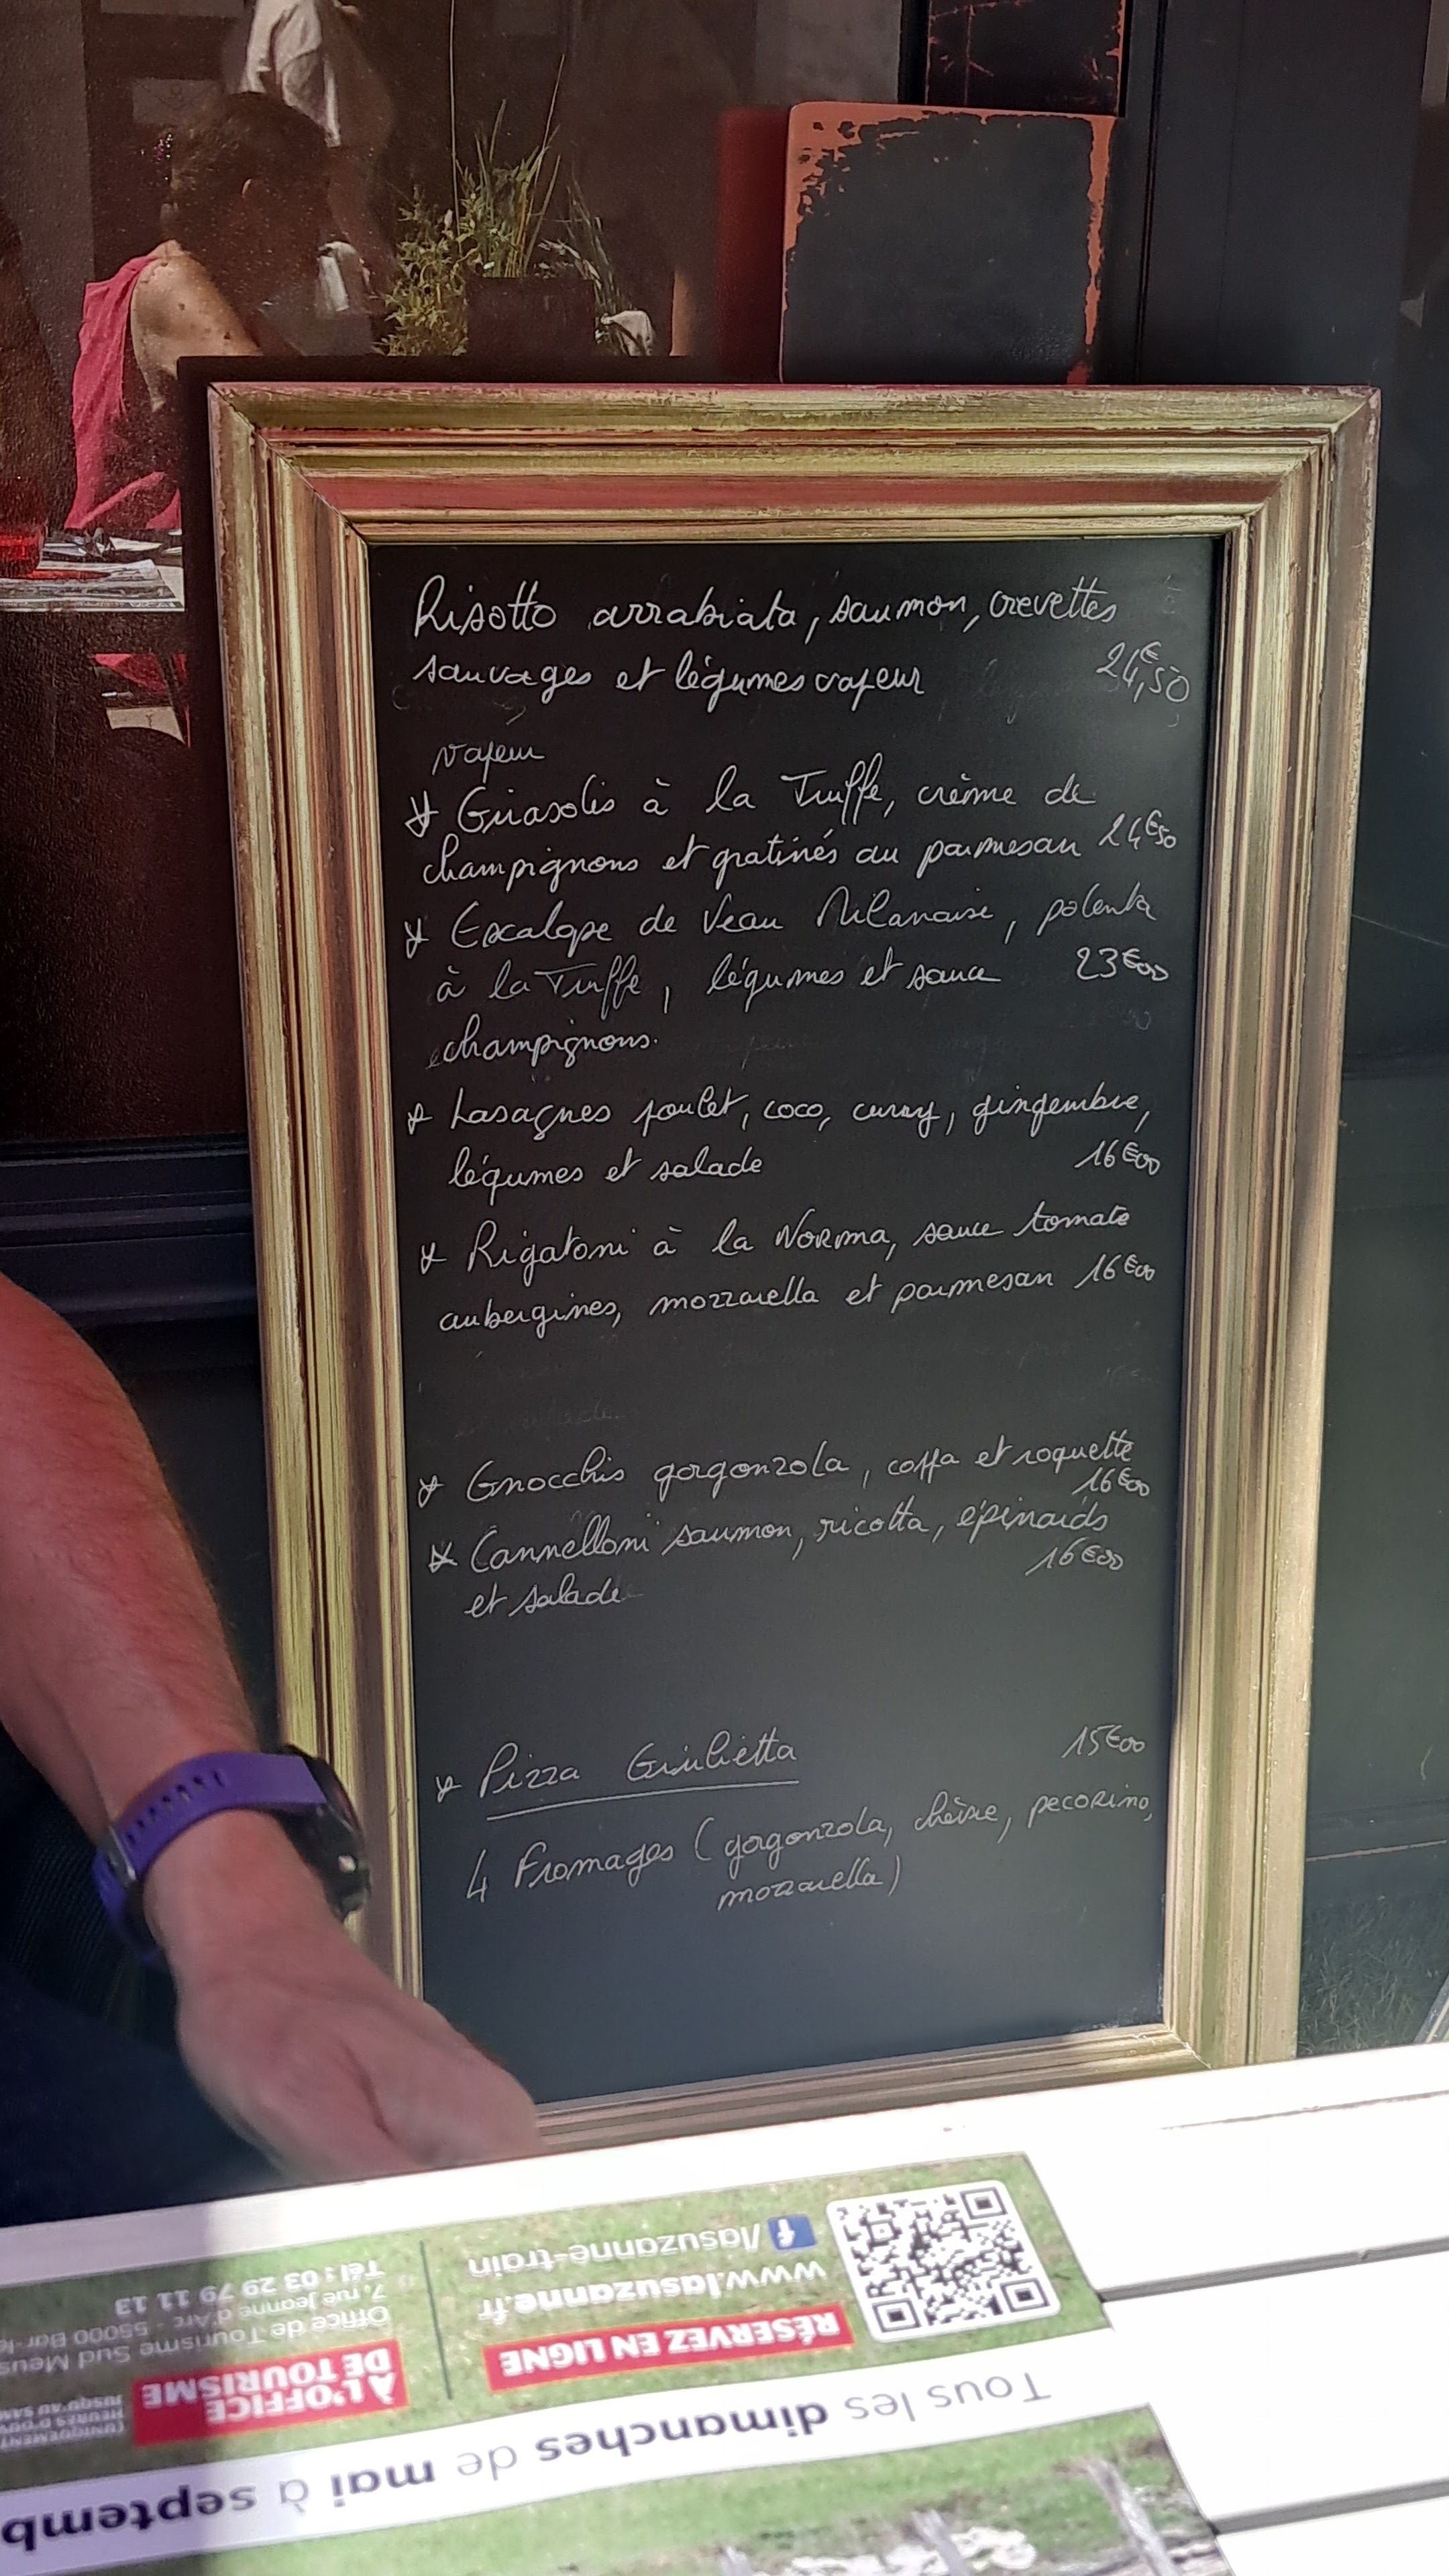 Risotto arrabiata, saumon, crevettes
sauvages et légumes vapeur 24,€50
vapeur
Girasolis à la Truffe, crème de
champignons et gratinés au parmesan 24€50
Escalope de Veau Milanaise, polenta
à la Truffe, légumes et sauce 23€00
champignons.
Lasagnes poulet, coco, curry, gingembre,
légumes et salade 16€00
Rigatoni à la Norma, sauce tomate
aubergines, mozzarella et parmesan 16€00
Gnocchis gorgonzola, coppa et roquette
16€00
Cannelloni saumon, ricotta, épinards
16€00
et salade
Pizza Giulietta 15€00
4 Fromages (gorgonzola, chèvre, pecorino,
mozzarella)
/lasuzanne-train
www.lasuzanne.fr
RÉSERVEZ EN LIGNE
Tél : 03 29 79 11 13
7, rue Jeanne d'Arc - 55000 Bar-le
Office de Tourisme Sud Meus
À L'OFFICE
DE TOURISME
(UNIQUEMENT
HEURES D'OUV
JUSQU'AU SAM
Tous les dimanches de mai à septemb